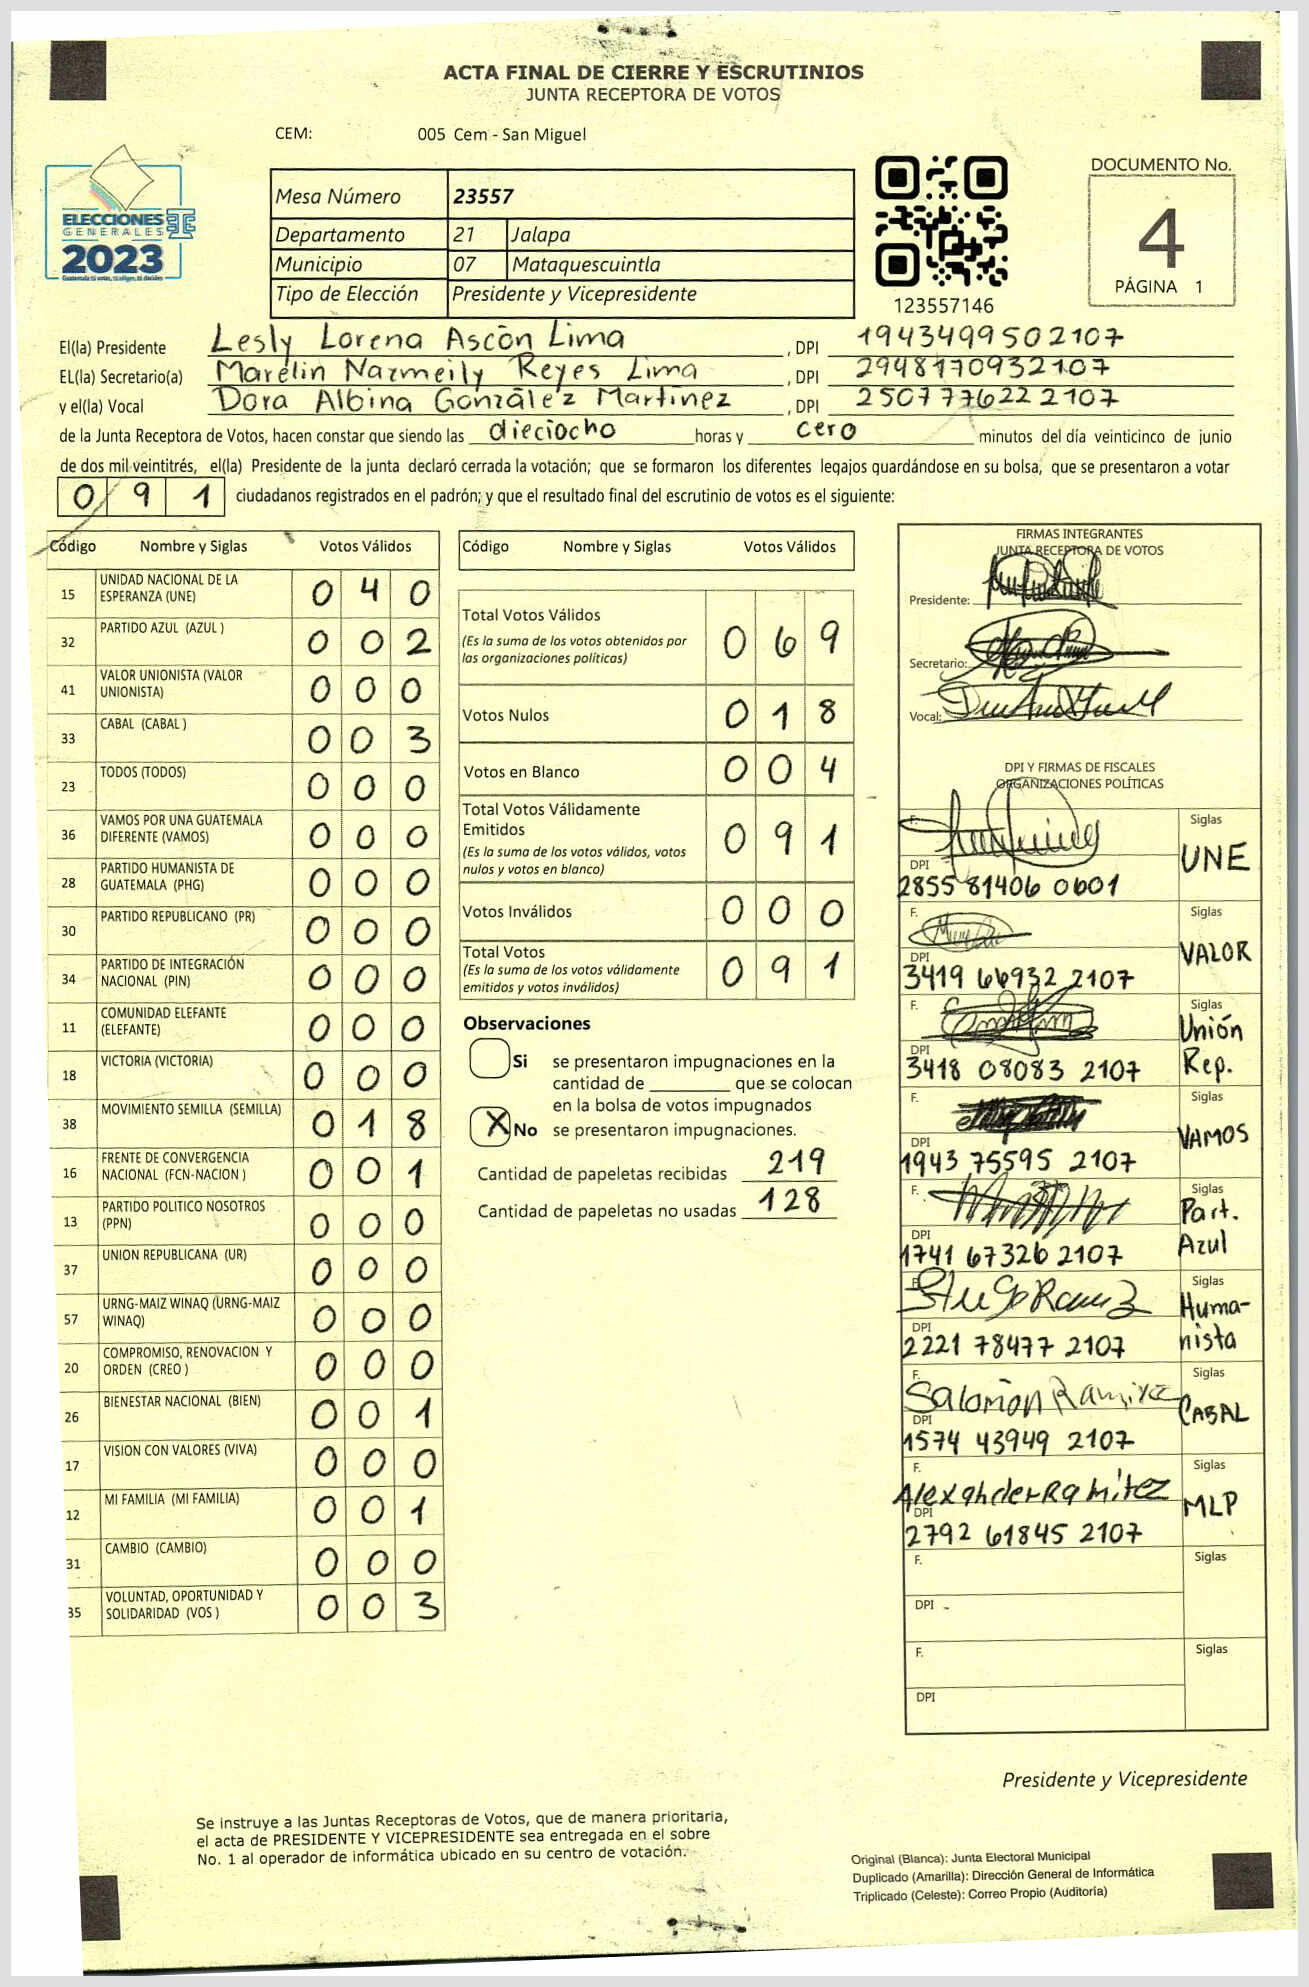 ACTA FINAL DE CIERRE Y ESCRUTINIOS
JUNTA RECEPTORA DE VOTOS
CEM: 005 Cem - San Miguel
ELECCIONES
GENERALES
2023
Guatemala tú votas, tú eliges, tú decides
Mesa Número 23557
Departamento 21 Jalapa
Municipio 07 Mataquescuintla
Tipo de Elección Presidente y Vicepresidente
123557146
DOCUMENTO No.
4
PÁGINA 1
El(la) Presidente Lesly Lorena Ascón Lima , DPI 1943499502107
EL(la) Secretario(a) Marelin Nazmeily Reyes Lima , DPI 2948170932107
y el(la) Vocal Dora Albina González Martínez , DPI 2507776222107
de la Junta Receptora de Votos, hacen constar que siendo las dieciocho horas y cero minutos del día veinticinco de junio
de dos mil veintitrés, el(la) Presidente de la junta declaró cerrada la votación; que se formaron los diferentes legajos guardándose en su bolsa, que se presentaron a votar
091 ciudadanos registrados en el padrón; y que el resultado final del escrutinio de votos es el siguiente:
Código Nombre y Siglas Votos Válidos
15 UNIDAD NACIONAL DE LA ESPERANZA (UNE) 0 4 0
32 PARTIDO AZUL (AZUL ) 0 0 2
41 VALOR UNIONISTA (VALOR UNIONISTA) 0 0 0
33 CABAL (CABAL ) 0 0 3
23 TODOS (TODOS) 0 0 0
36 VAMOS POR UNA GUATEMALA DIFERENTE (VAMOS) 0 0 0
28 PARTIDO HUMANISTA DE GUATEMALA (PHG) 0 0 0
30 PARTIDO REPUBLICANO (PR) 0 0 0
34 PARTIDO DE INTEGRACIÓN NACIONAL (PIN) 0 0 0
11 COMUNIDAD ELEFANTE (ELEFANTE) 0 0 0
18 VICTORIA (VICTORIA) 0 0 0
38 MOVIMIENTO SEMILLA (SEMILLA) 0 1 8
16 FRENTE DE CONVERGENCIA NACIONAL (FCN-NACION ) 0 0 1
13 PARTIDO POLITICO NOSOTROS (PPN) 0 0 0
37 UNION REPUBLICANA (UR) 0 0 0
57 URNG-MAIZ WINAQ (URNG-MAIZ WINAQ) 0 0 0
20 COMPROMISO, RENOVACION Y ORDEN (CREO ) 0 0 0
26 BIENESTAR NACIONAL (BIEN) 0 0 1
17 VISION CON VALORES (VIVA) 0 0 0
12 MI FAMILIA (MI FAMILIA) 0 0 1
31 CAMBIO (CAMBIO) 0 0 0
35 VOLUNTAD, OPORTUNIDAD Y SOLIDARIDAD (VOS ) 0 0 3
Código Nombre y Siglas Votos Válidos
Total Votos Válidos 0 6 9
(Es la suma de los votos obtenidos por
las organizaciones políticas)
Votos Nulos 0 1 8
Votos en Blanco 0 0 4
Total Votos Válidamente
Emitidos 0 9 1
(Es la suma de los votos válidos, votos
nulos y votos en blanco)
Votos Inválidos 0 0 0
Total Votos 0 9 1
(Es la suma de los votos válidamente
emitidos y votos inválidos)
Observaciones
Si se presentaron impugnaciones en la
cantidad de ________ que se colocan
en la bolsa de votos impugnados
X No se presentaron impugnaciones.
Cantidad de papeletas recibidas 219
Cantidad de papeletas no usadas 128
FIRMAS INTEGRANTES
JUNTA RECEPTORA DE VOTOS
Presidente:
Secretario:
Vocal:
DPI Y FIRMAS DE FISCALES
ORGANIZACIONES POLÍTICAS
F. Siglas UNE
DPI 2855 81406 0601
F. Siglas VALOR
DPI 3419 66932 2107
F. Siglas Unión Rep.
DPI 3418 08083 2107
F. Siglas VAMOS
DPI 1943 75595 2107
F. Siglas Part. Azul
DPI 1741 67326 2107
F. Siglas Humanista
DPI 2221 78477 2107
F. Salomón Ramirez Siglas CABAL
DPI 1574 43949 2107
F. Alexander Ramírez Siglas MLP
DPI 2792 61845 2107
F. Siglas
DPI
F. Siglas
DPI
Presidente y Vicepresidente
Se instruye a las Juntas Receptoras de Votos, que de manera prioritaria,
el acta de PRESIDENTE Y VICEPRESIDENTE sea entregada en el sobre
No. 1 al operador de informática ubicado en su centro de votación.
Original (Blanca): Junta Electoral Municipal
Duplicado (Amarilla): Dirección General de Informática
Triplicado (Celeste): Correo Propio (Auditoría)